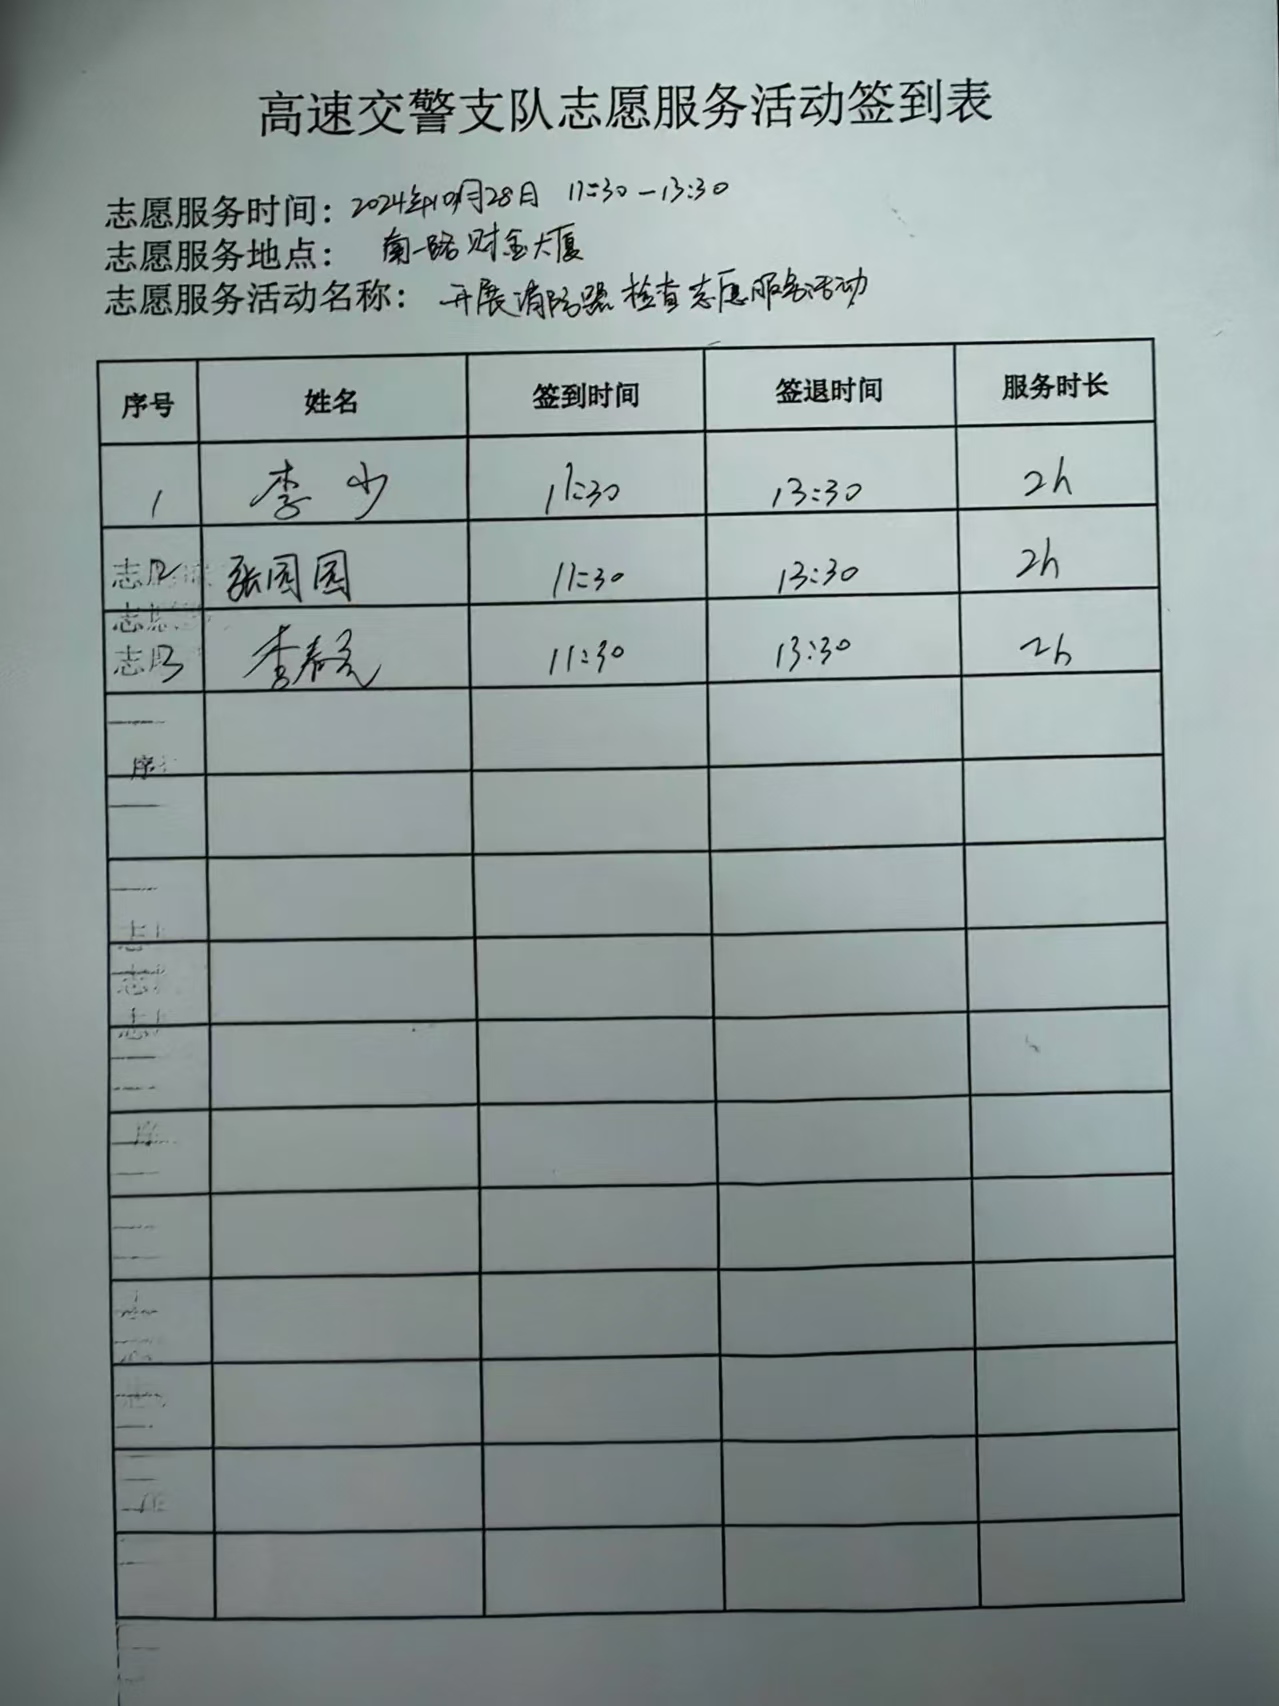 高速交警支队志愿服务活动签到表
志愿服务时间：2024年10月28日 11:30-13:30
志愿服务地点：南一路财金大厦
志愿服务活动名称：开展消防器检查志愿服务活动
序号 姓名 签到时间 签退时间 服务时长
1 李少 11:30 13:30 2h
2 张园园 11:30 13:30 2h
3 李春 11:30 13:30 2h